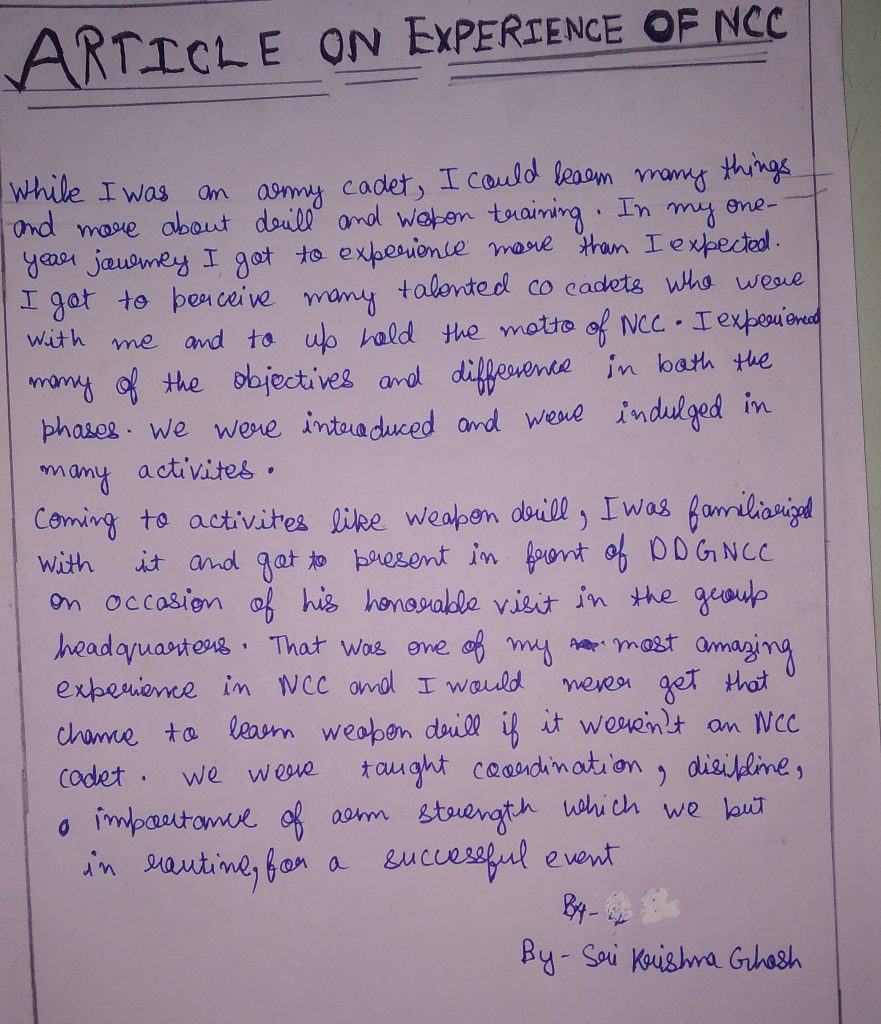 ARTICLE ON EXPERIENCE OF NCC
While I was an army cadet, I could learn many things
and more about drill and wepon training. In my one-
year journey I got to experience more than I expected.
I got to perceive many talented co cadets who were
with me and to up hold the motto of NCC. I experienced
many of the objectives and difference in both the
phases. We were introduced and were indulged in
many activites.
Coming to activites like weapon drill, I was familiarized
with it and got to present in front of DDGNCC
on occasion of his honorable visit in the group
headquarters. That was one of my most amazing
experience in NCC and I would never get that
chance to learn weapon drill if it weren't an NCC
cadet. We were taught coordination, disipline,
importance of arm strength which we put
in routine, for a successful event
By-
By- Sri Krishna Ghosh